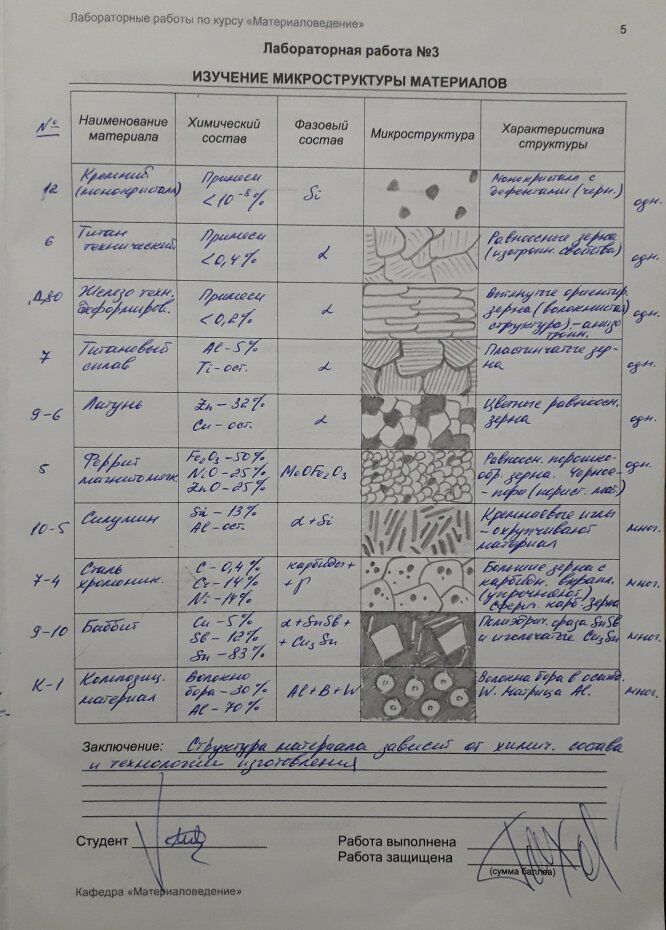 Лабораторные работы по курсу «Материаловедение»
5
Лабораторная работа №3
ИЗУЧЕНИЕ МИКРОСТРУКТУРЫ МАТЕРИАЛОВ
№ Наименование материала Химический состав Фазовый состав Микроструктура Характеристика структуры
12 Кремний (монокристалл) Примеси <10⁻⁸% Si Монокристалл с дефектами (черн.) одн.
6 Титан технический Примеси <0,4% α Равноосные зерна (изотропн. свойства) одн.
Д80 Железо техн. деформиров. Примеси <0,2% α Вытянутые ориентир. зерна (волокнистая структура) – анизотропн. одн.
7 Титановый сплав Al-5% Ti-ост. α Пластинчатые зерна одн.
9-6 Латунь Zn-32% Cu-ост. α Цветные равноосн. зерна одн.
5 Феррит магнитомягк. Fe₂O₃-50% NiO-25% ZnO-25% MeOFe₂O₃ Равноосн. порошкообр. зерна. Черное - поры одн.
10-5 Силумин Si-13% Al-ост. α+Si Кремниевые иглы - окружив материал мног.
7-4 Сталь хромоник. C-0,4% Cr-14% Ni-14% карбиды+ +γ Большие зерна с карбидн. вкрапл. (упрочняют) сферич. карб. зерна мног.
9-10 Баббит Cu-5% Sb-12% Sn-83% α+SnSb+ +Cu₃Sn фаза SnSb и игольчатые Cu₃Sn мног.
К-1 Композиц. материал Волокно бора-30% Al-70% Al+B+W Волокна бора в W. Матрица Al. мног.
Заключение: Структура материала зависит от химич. состава
и технологии изготовления
Студент
Работа выполнена
Работа защищена
(сумма баллов)
Кафедра «Материаловедение»